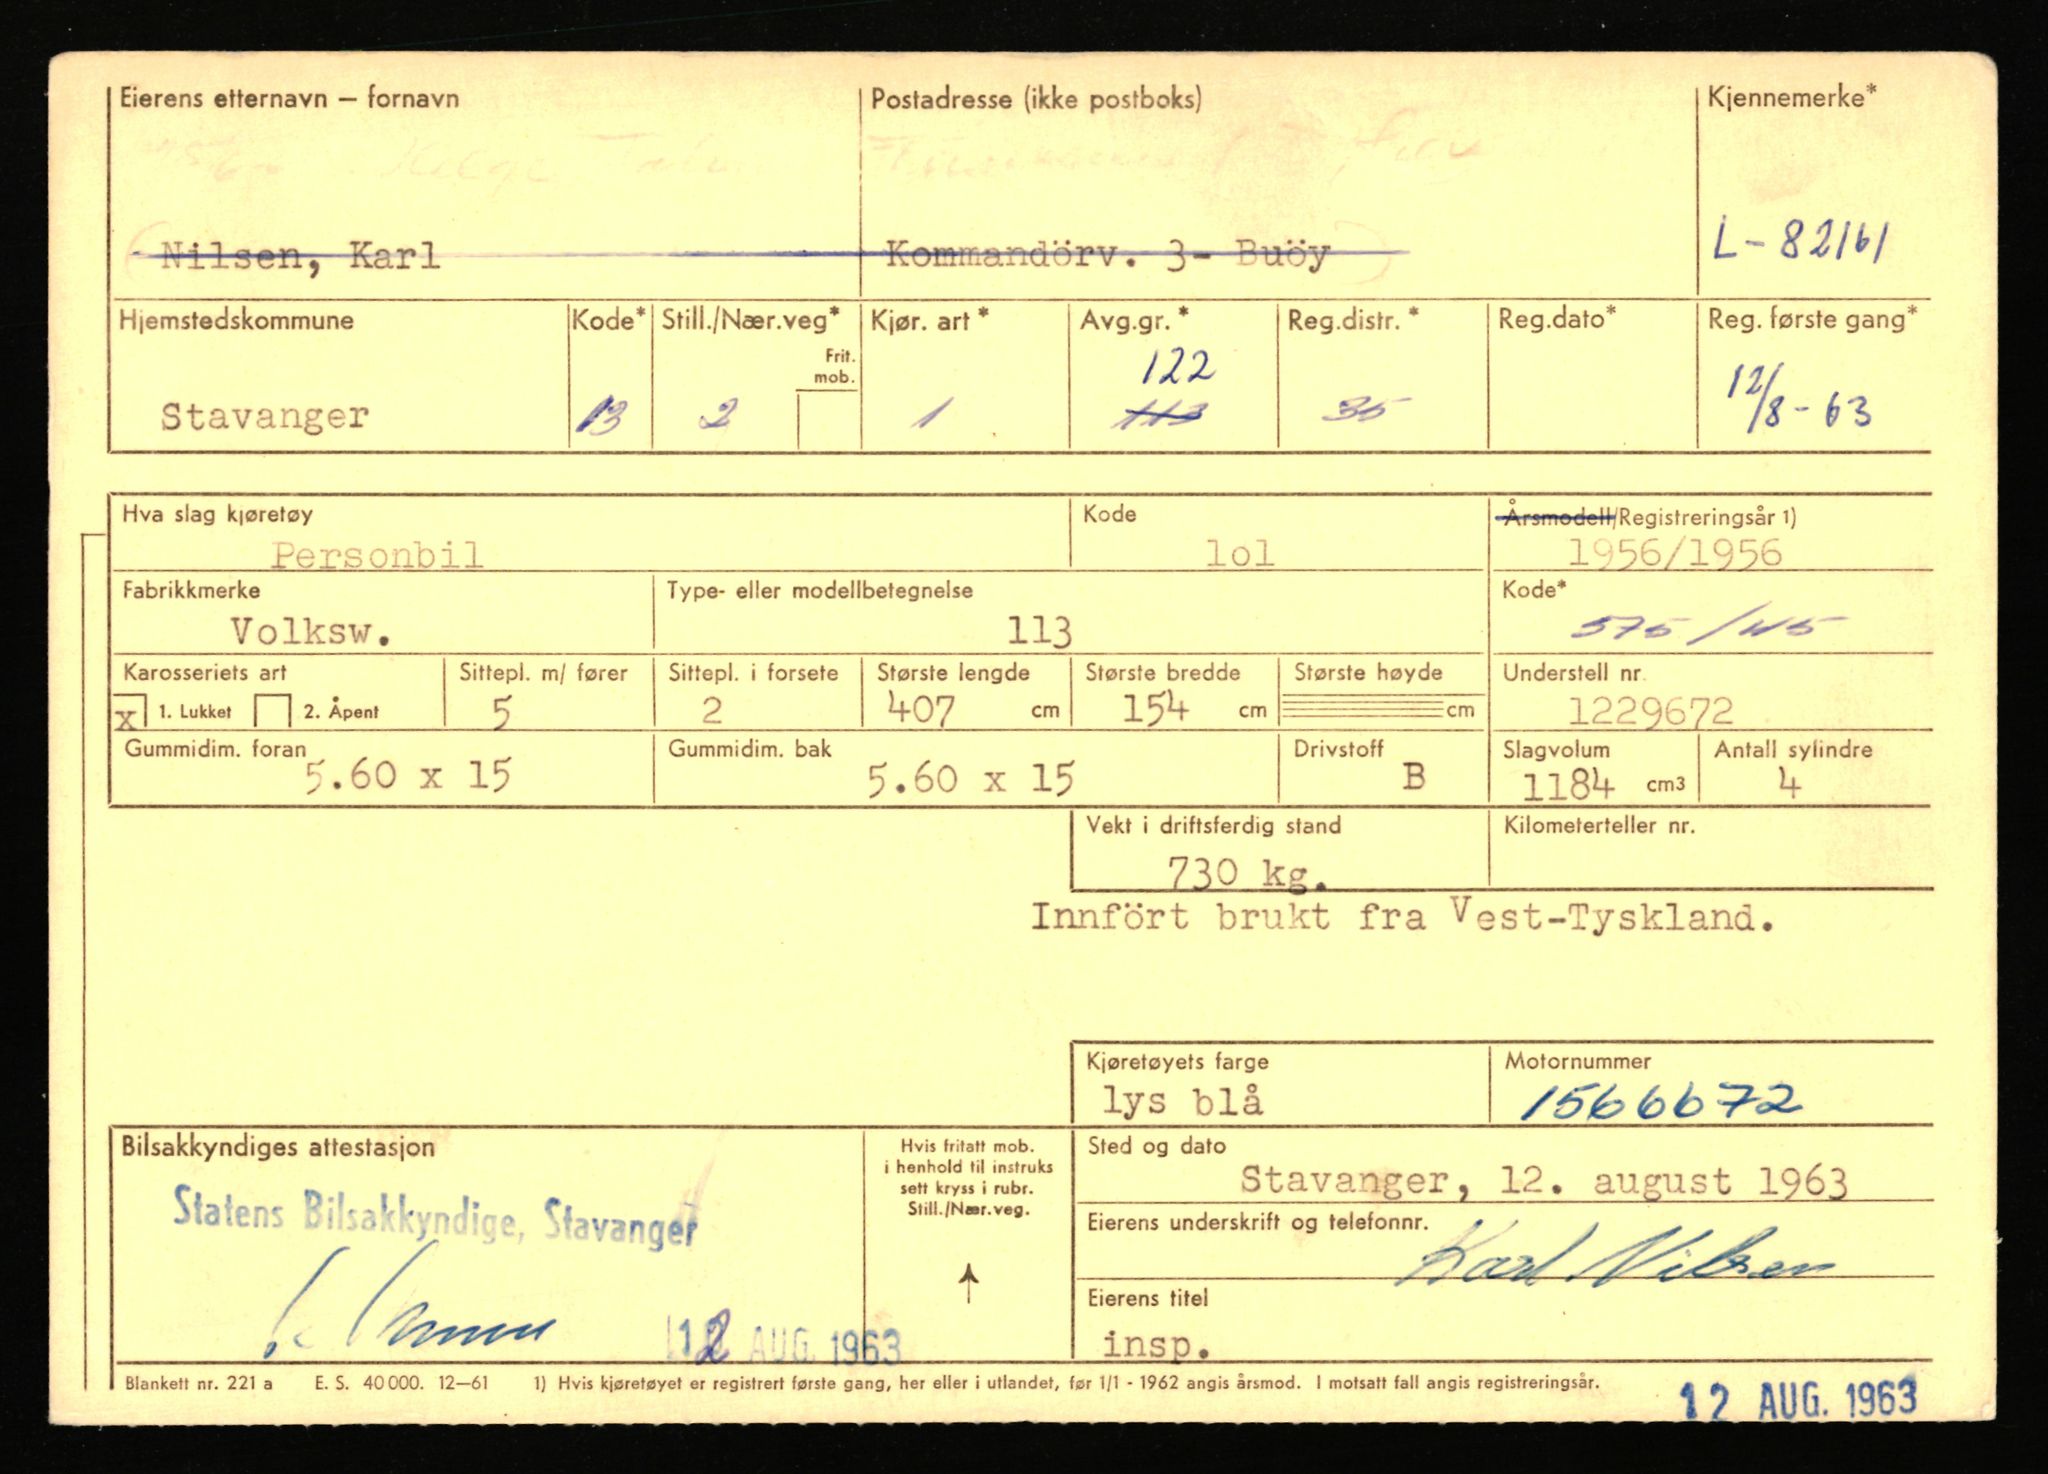 Eierens etternavn – fornavn
Postadresse (ikke postboks)
Kjennemerke*
Nilsen, Karl
Kommandörv. 3- Buöy
L-82161
Hjemstedskommune
Kode*
Still./Nær.veg*
Kjør. art *
Avg.gr. *
Reg.distr. *
Reg.dato*
Reg. første gang*
Frit.
mob.
122
Stavanger
13
2
1
113
35
12/8-63
Hva slag kjøretøy
Kode
Årsmodell/Registreringsår 1)
Personbil
lol
1956/1956
Fabrikkmerke
Type- eller modellbetegnelse
Kode*
Volksw.
113
575/45
Karosseriets art
Sittepl. m/ fører
Sittepl. i forsete
Største lengde
Største bredde
Største høyde
Understell nr.
x 1. Lukket
2. Åpent
5
2
407 cm
154 cm
cm
1229672
Gummidim. foran
Gummidim. bak
Drivstoff
Slagvolum
Antall sylindre
5.60 x 15
5.60 x 15
B
1184 cm3
4
Vekt i driftsferdig stand
Kilometerteller nr.
730 kg.
Innfört brukt fra Vest-Tyskland.
Kjøretøyets farge
Motornummer
lys blå
1566672
Bilsakkyndiges attestasjon
Hvis fritatt mob.
i henhold til instruks
sett kryss i rubr.
Still./Nær.veg.
Sted og dato
Stavanger, 12. august 1963
Statens Bilsakkyndige, Stavanger
Eierens underskrift og telefonnr.
Karl Nilsen
Eierens titel
12 AUG. 1963
insp.
Blankett nr. 221 a E. S. 40 000. 12–61 1) Hvis kjøretøyet er registrert første gang, her eller i utlandet, før 1/1 - 1962 angis årsmod. I motsatt fall angis registreringsår.
12 AUG. 1963